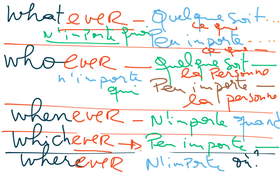 whatever – Quelque soit ...
ce que
N'importe quoi Peu importe ...
ce que
whoever – Quelque soit –
la personne
n'importe Peu importe –
qui la personne
whenever – N'importe quand
whichever → Peu importe –
wherever N'importe où?